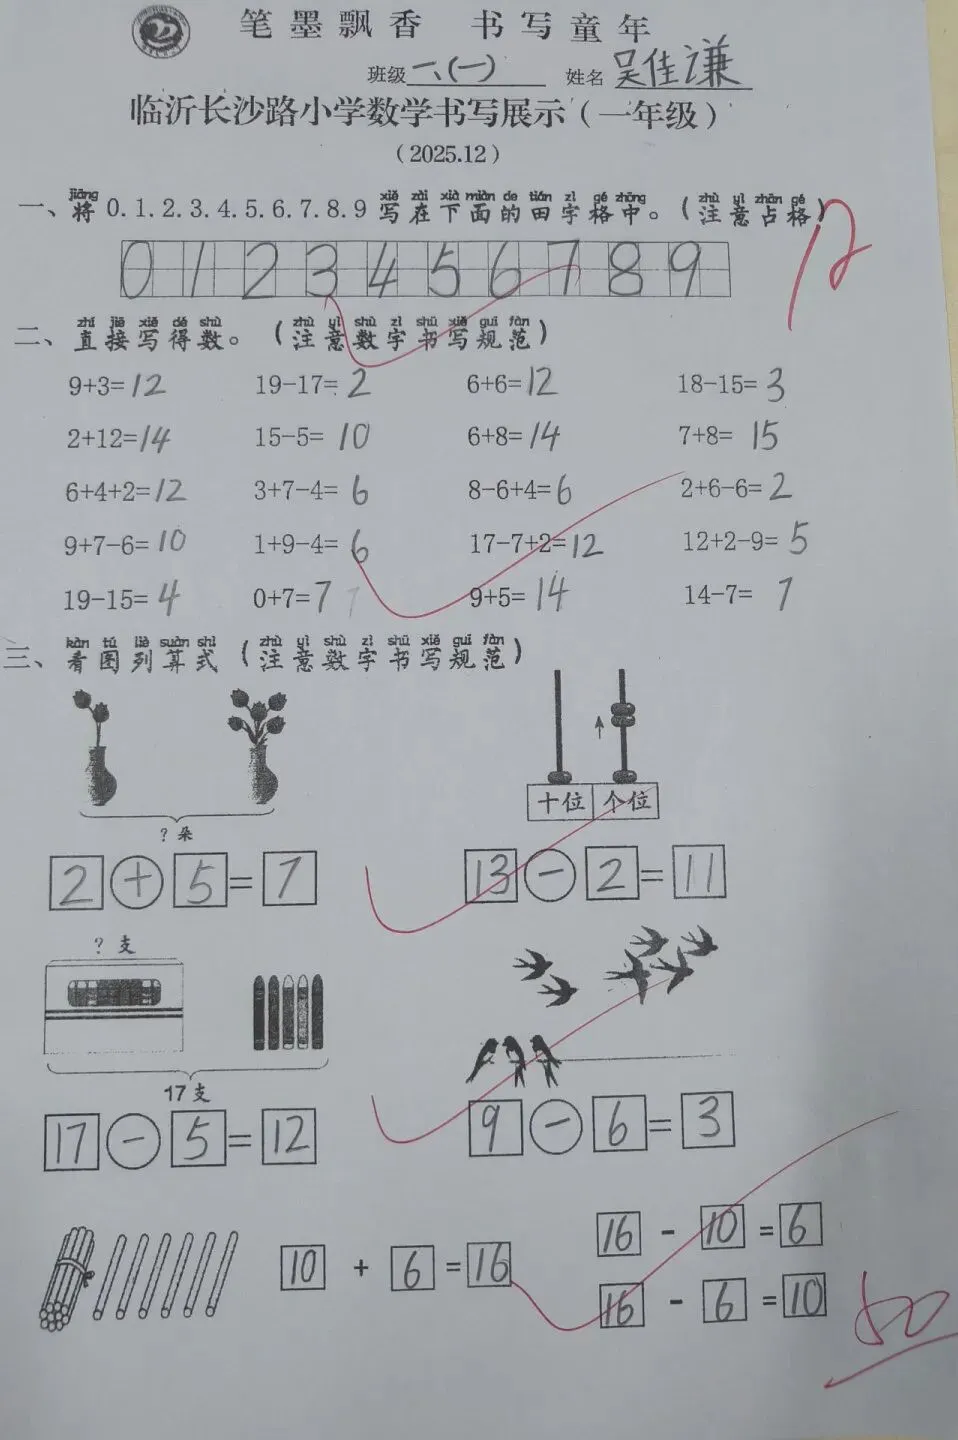 笔墨飘香 书写童年
班级 一、(一) 姓名 吴佳谦
临沂长沙路小学数学书写展示（一年级）
（2025.12）
jiāng xiě zài xià miàn de tián zì gé zhōng zhù yì zhàn gé
一、将 0.1.2.3.4.5.6.7.8.9 写在下面的田字格中。（注意占格）
12
0 1 2 3 4 5 6 7 8 9
zhí jiē xiě dé shù zhù yì shù zì shū xiě guī fàn
二、直接写得数。（注意数字书写规范）
9+3=12 19-17=2 6+6=12 18-15=3
2+12=14 15-5=10 6+8=14 7+8=15
6+4+2=12 3+7-4=6 8-6+4=6 2+6-6=2
9+7-6=10 1+9-4=6 17-7+2=12 12+2-9=5
19-15=4 0+7=7 9+5=14 14-7=7
kàn tú liè suàn shì zhù yì shù zì shū xiě guī fàn
三、看图列算式（注意数字书写规范）
十位 个位
?朵
2+5=7 13-2=11
?支
17支
17-5=12 9-6=3
10+6=16 16-10=6
16-6=10
50